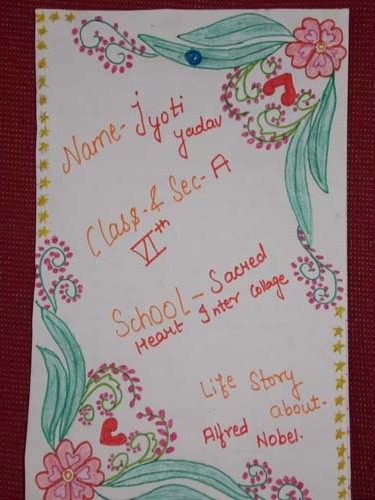 Name- Jyoti
Yadav
Class- & Sec- A
VIth
School - Sacred
Heart Inter Collage
Life Story
about-
Alfred Nobel.